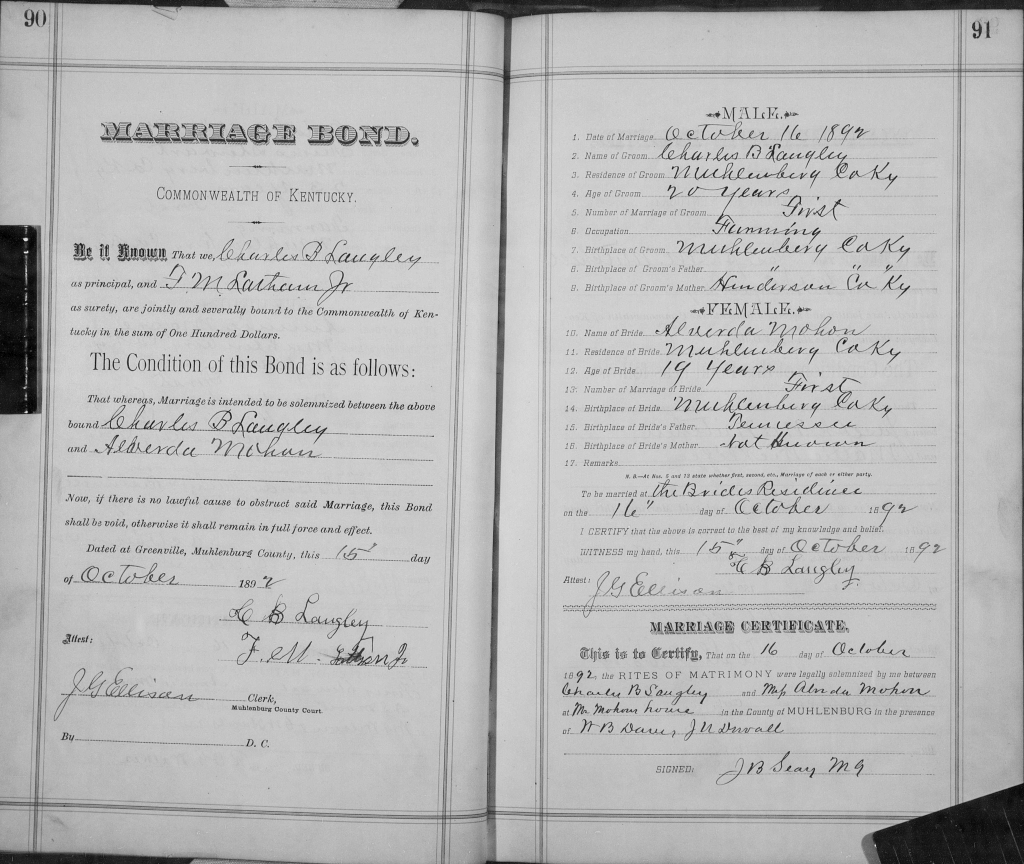 90
MARRIAGE BOND.
COMMONWEALTH OF KENTUCKY.
Be it Known That we, Charles B Langley
as principal, and F M Latham Jr
as surety, are jointly and severally bound to the Commonwealth of Ken-
tucky in the sum of One Hundred Dollars.
The Condition of this Bond is as follows:
That whereas, Marriage is intended to be solemnized between the above
bound Charles B Langley
and Alverda Mohon
Now, if there is no lawful cause to obstruct said Marriage, this Bond
shall be void, otherwise it shall remain in full force and effect.
Dated at Greenville, Muhlenburg County, this 15" day
of October 1892
C B Langley
Attest: F. M. Jr
J G Ellison Clerk,
Muhlenburg County Court.
By D. C.
91
MALE.
1. Date of Marriage. October 16 1892
2. Name of Groom Charles B Langley
3. Residence of Groom Muhlenberg Co Ky
4. Age of Groom 20 Years
5. Number of Marriage of Groom First
6. Occupation Farming
7. Birthplace of Groom Muhlenberg Co Ky
8. Birthplace of Groom's Father " " "
9. Birthplace of Groom's Mother Henderson Co Ky
FEMALE.
10. Name of Bride Alverda Mohon
11. Residence of Bride Muhlenberg Co Ky
12. Age of Bride 19 Years
13. Number of Marriage of Bride First
14. Birthplace of Bride Muhlenberg Co Ky
15. Birthplace of Bride's Father Tennessee
16. Birthplace of Bride's Mother Not Known
17. Remarks
N. B.—At Nos. 5 and 13 state whether first, second, etc., Marriage of each or either party.
To be married at the Brides Residence
on the 16" day of October 1892
I CERTIFY that the above is correct to the best of my knowledge and belief.
WITNESS my hand, this 15" day of October 1892
C B Langley
Attest: J G Ellison
MARRIAGE CERTIFICATE.
This is to Certify, That on the 16 day of October
1892, the RITES OF MATRIMONY were legally solemnized by me between
Charles B Langley and Miss Alvida Mohon
at Mr Mohons house in the County of MUHLENBURG in the presence
of W B Davis, J N Duvall
SIGNED: J B Seay M G